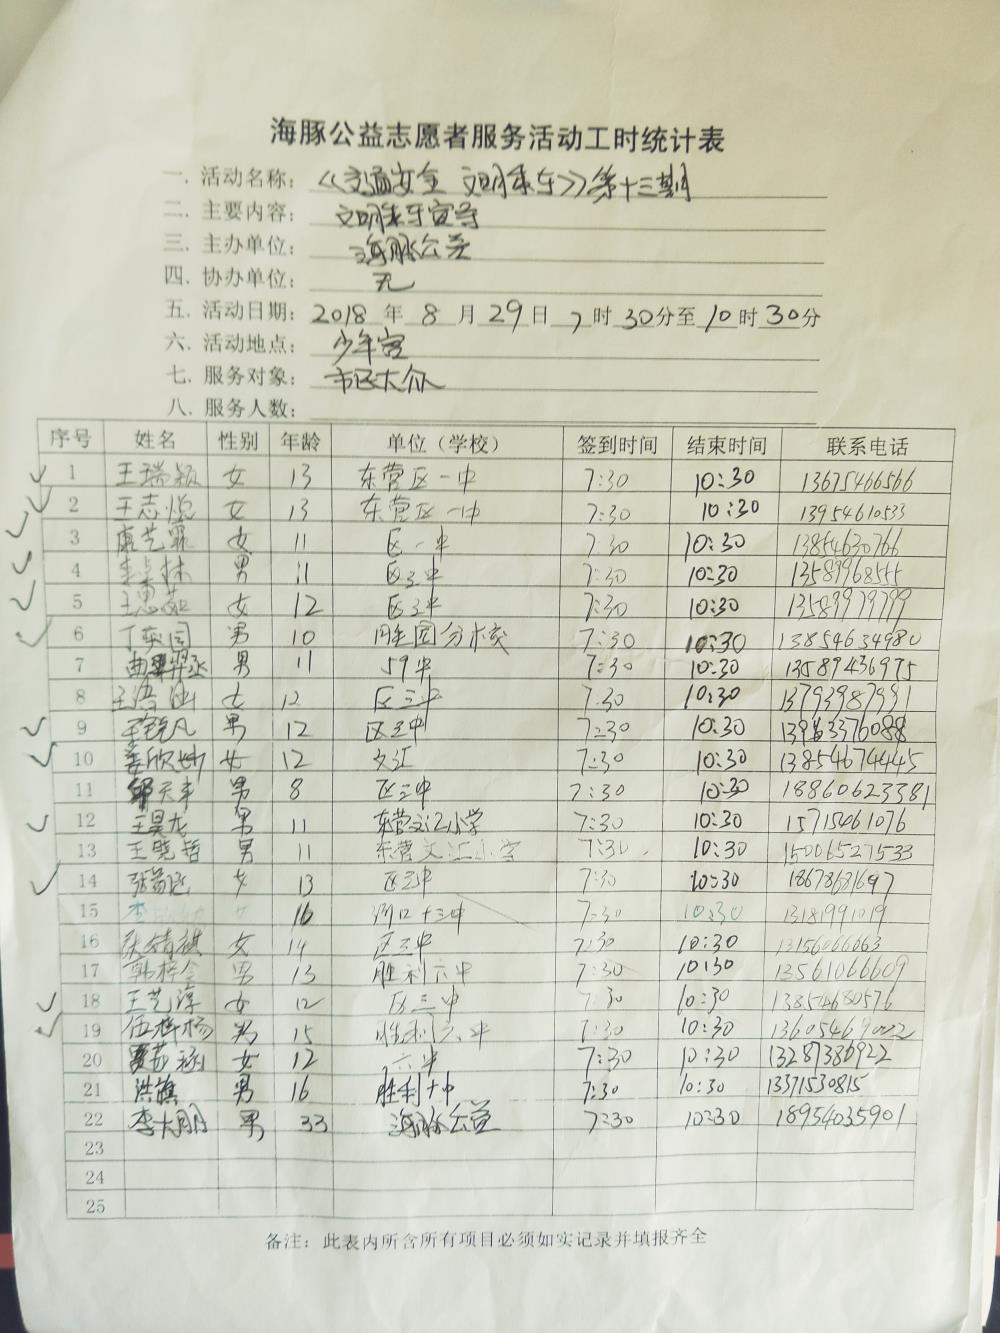 海豚公益志愿者服务活动工时统计表
一. 活动名称: 《交通安全 文明乘车》第十三期
二. 主要内容: 文明乘车宣导
三. 主办单位: 海豚公益
四. 协办单位: 无
五. 活动日期: 2018 年 8 月 29 日 7 时 30分至 10 时 30分
六. 活动地点: 少年宫
七. 服务对象: 市区大众
八. 服务人数:
序号 姓名 性别 年龄 单位（学校） 签到时间 结束时间 联系电话
1 王瑞颖 女 13 东营区一中 7:30 10:30 13675466566
2 王志悦 女 13 东营区一中 7:30 10:30 13954610533
3 女 11 区一中 7:30 10:30 13854630766
4 男 11 区三中 7:30 10:30 13589968555
5 王思茹 女 12 区三中 7:30 10:30 13589979799
6 男 10 胜园分校 7:30 10:30 13854634980
7 男 11 59中 7:30 10:30 13589436975
8 女 12 区三中 7:30 10:30 13793987991
9 男 12 区三中 7:30 10:30
10 姜欣妙 女 12 文汇 7:30 10:30 13854674445
11 邹天丰 男 8 区三中 7:30 10:30 18860623381
12 王昊龙 男 11 东营文汇小学 7:30 10:30 15715461076
13 王晓哲 男 11 东营文汇小学 7:30 10:30 15006527533
14 女 13 区三中 7:30 10:30 18678681697
15 李 女 16 河口十三中 7:30 10:30 13181991019
16 张婧祺 女 14 区三中 7:30 10:30 13156066663
17 韩梓令 男 13 胜利六中 7:30 10:30 13561066609
18 王艺淳 女 12 区三中 7:30 10:30 13854680576
19 伍梓杨 男 15 胜利六中 7:30 10:30 13605469022
20 女 12 六中 7:30 10:30 13287386922
21 洪旗 男 16 胜利十中 7:30 10:30 13371530815
22 李大朋 男 33 海豚公益 7:30 10:30 18954035901
23
24
25
备注: 此表内所含所有项目必须如实记录并填报齐全